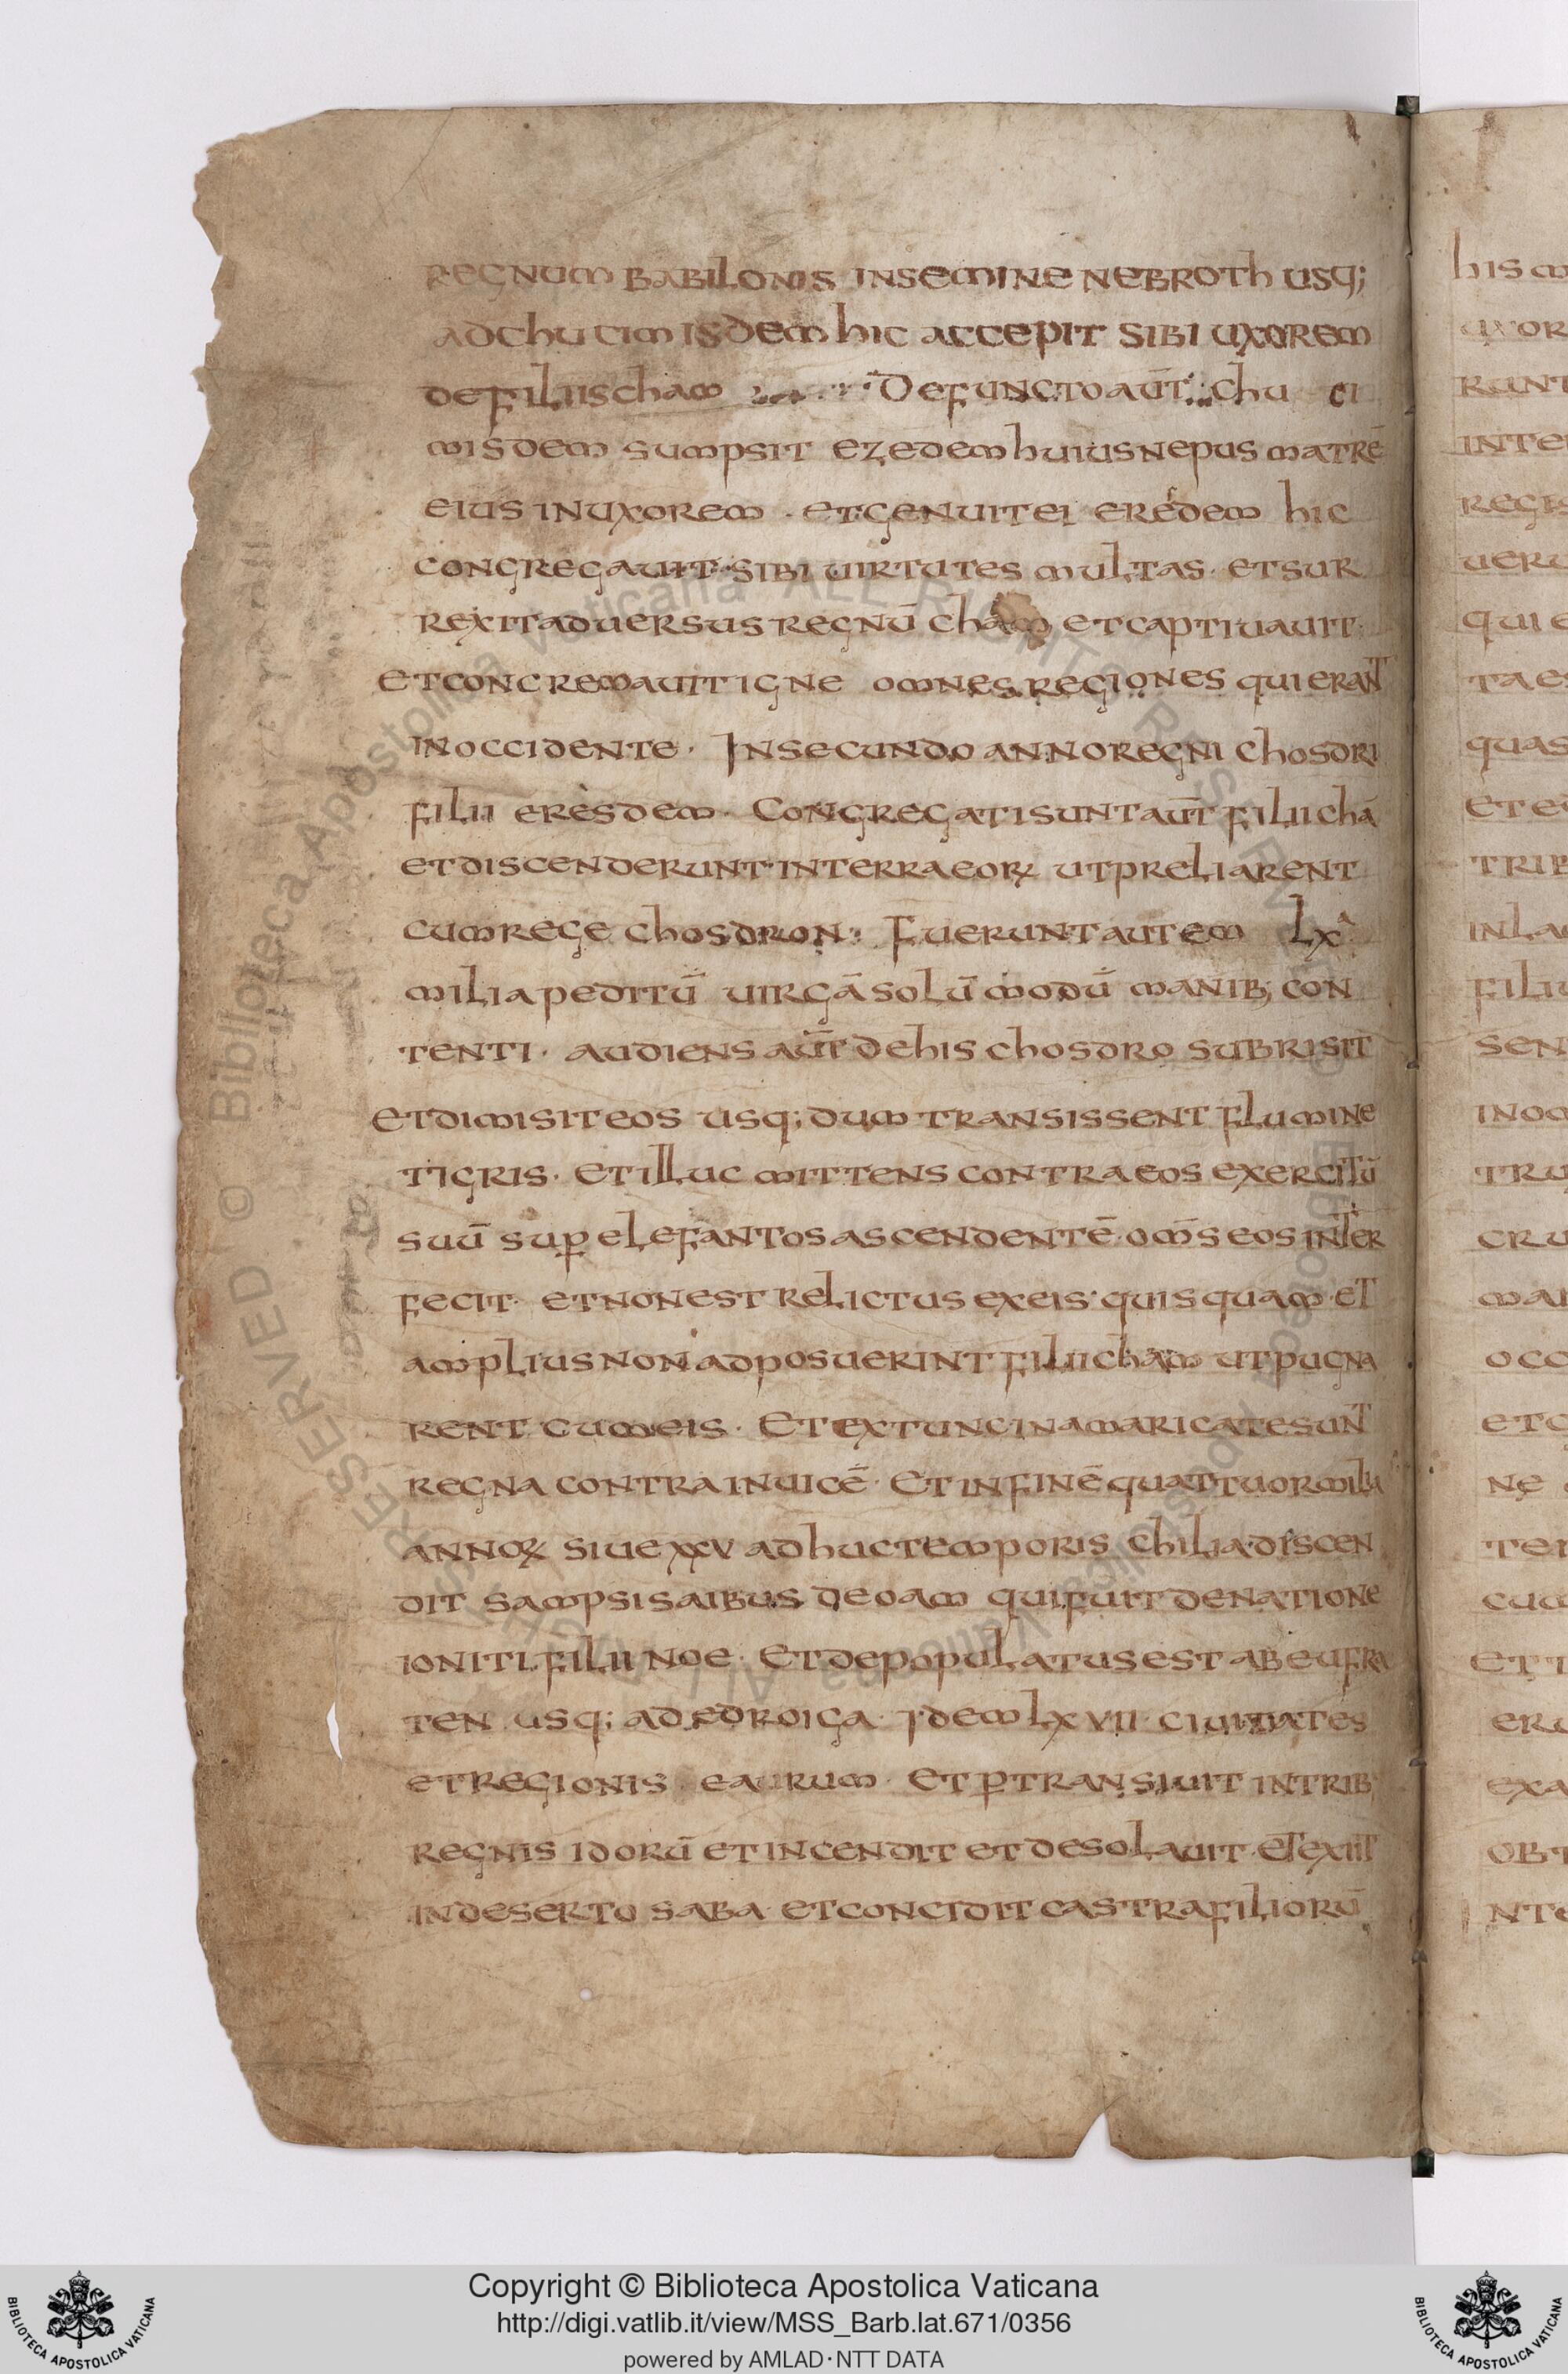 regnum babilonis in semine nebroth usq;
ad chucimisdem hic accepit sibi uxorem
de filiis cham Defuncto aūt chu ci
misdem sumpsit ezedem huius nepus matrē
eius in uxorem · et genuit ei eredem hic
congregauit sibi uirtutes multas · et sur
rexit aduersus regnū cham et captiuauit
et concremauit igne omnes regiones qui erant
in occidente · In secundo anno regni chosdri
filii eresdem · Congregati sunt aūt filii chā
et discenderunt in terra eoꝝ ut preliarent
cum rege chosdron · Fuerunt autem lx
milia peditū uirgā solū modū manib; con
tenti · audiens aūt de his chosdro subrisit
et dimisit eos usq; dum transissent flumine
tigris · et illuc mittens contra eos exercitū
suū suꝑ elefantos ascendentē · om̄s eos inter
fecit · et non est relictus ex eis · quisquam · et
amplius non adposuerint filii cham ut pugna
rent cum eis · Et ex tunc inamaricate sunt
regna contra inuicē · Et in finē quattuor milia
annoꝝ siue xxv adhuc temporis chilia · discen
dit sampsisaibus de oam qui fuit de natione
ioniti filii noe · Et depopulatus est ab eufra
ten usq; ad edroiga · Idem lxvii · ciuitates
et regionis earum · Et ꝑtransiuit in trib
regnis idorū et incendit et desolauit · et exiit
in deserto saba · et concidit castra filiorū
his m
uxor
runt
inte
regis
ueru
qui e
ta es
quas
et e
trib
in la
filiu
sen
in oc
tru
cru
mar
occ
et c
ne
ter
cum
et i
eru
exa
obt
nte
Copyright © Biblioteca Apostolica Vaticana
http://digi.vatlib.it/view/MSS_Barb.lat.671/0356
powered by AMLAD·NTT DATA
BIBLIOTECA APOSTOLICA VATICANA
BIBLIOTECA APOSTOLICA VATICANA